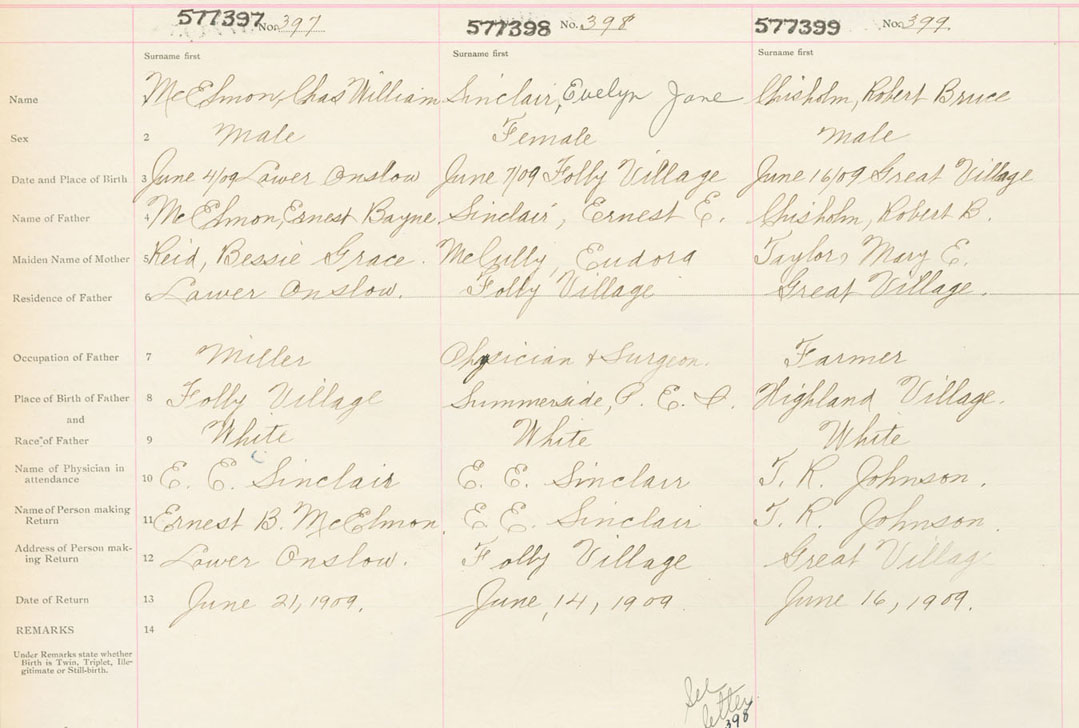 577397 No. 397 577398 No. 398 577399 No. 399
Surname first Surname first Surname first
Name McElmon, Chas William Sinclair, Evelyn Jane Chisholm, Robert Bruce
Sex 2 Male Female Male
Date and Place of Birth 3 June 4/09 Lower Onslow June 7/09 Folly Village June 16/09 Great Village
Name of Father 4 McElmon, Ernest Bayne Sinclair, Ernest E. Chisholm, Robert B.
Maiden Name of Mother 5 Reid, Bessie Grace. McCully, Eudora Taylor, Mary E.
Residence of Father 6 Lower Onslow. Folly Village Great Village.
Occupation of Father 7 Miller Physician & Surgeon. Farmer
Place of Birth of Father 8 Folly Village Summerside, P. E. I. Highland Village.
and
Race of Father 9 White White White
Name of Physician in
attendance 10 E. E. Sinclair E. E. Sinclair T. R. Johnson.
Name of Person making
Return 11 Ernest B. McElmon E E. Sinclair T. R. Johnson.
Address of Person mak-
ing Return 12 Lower Onslow. Folly Village Great Village
Date of Return 13 June 21, 1909. June, 14, 1909. June 16, 1909.
REMARKS 14
Under Remarks state whether
Birth is Twin, Triplet, Ille-
gitimate or Still-birth.
See
letter
398